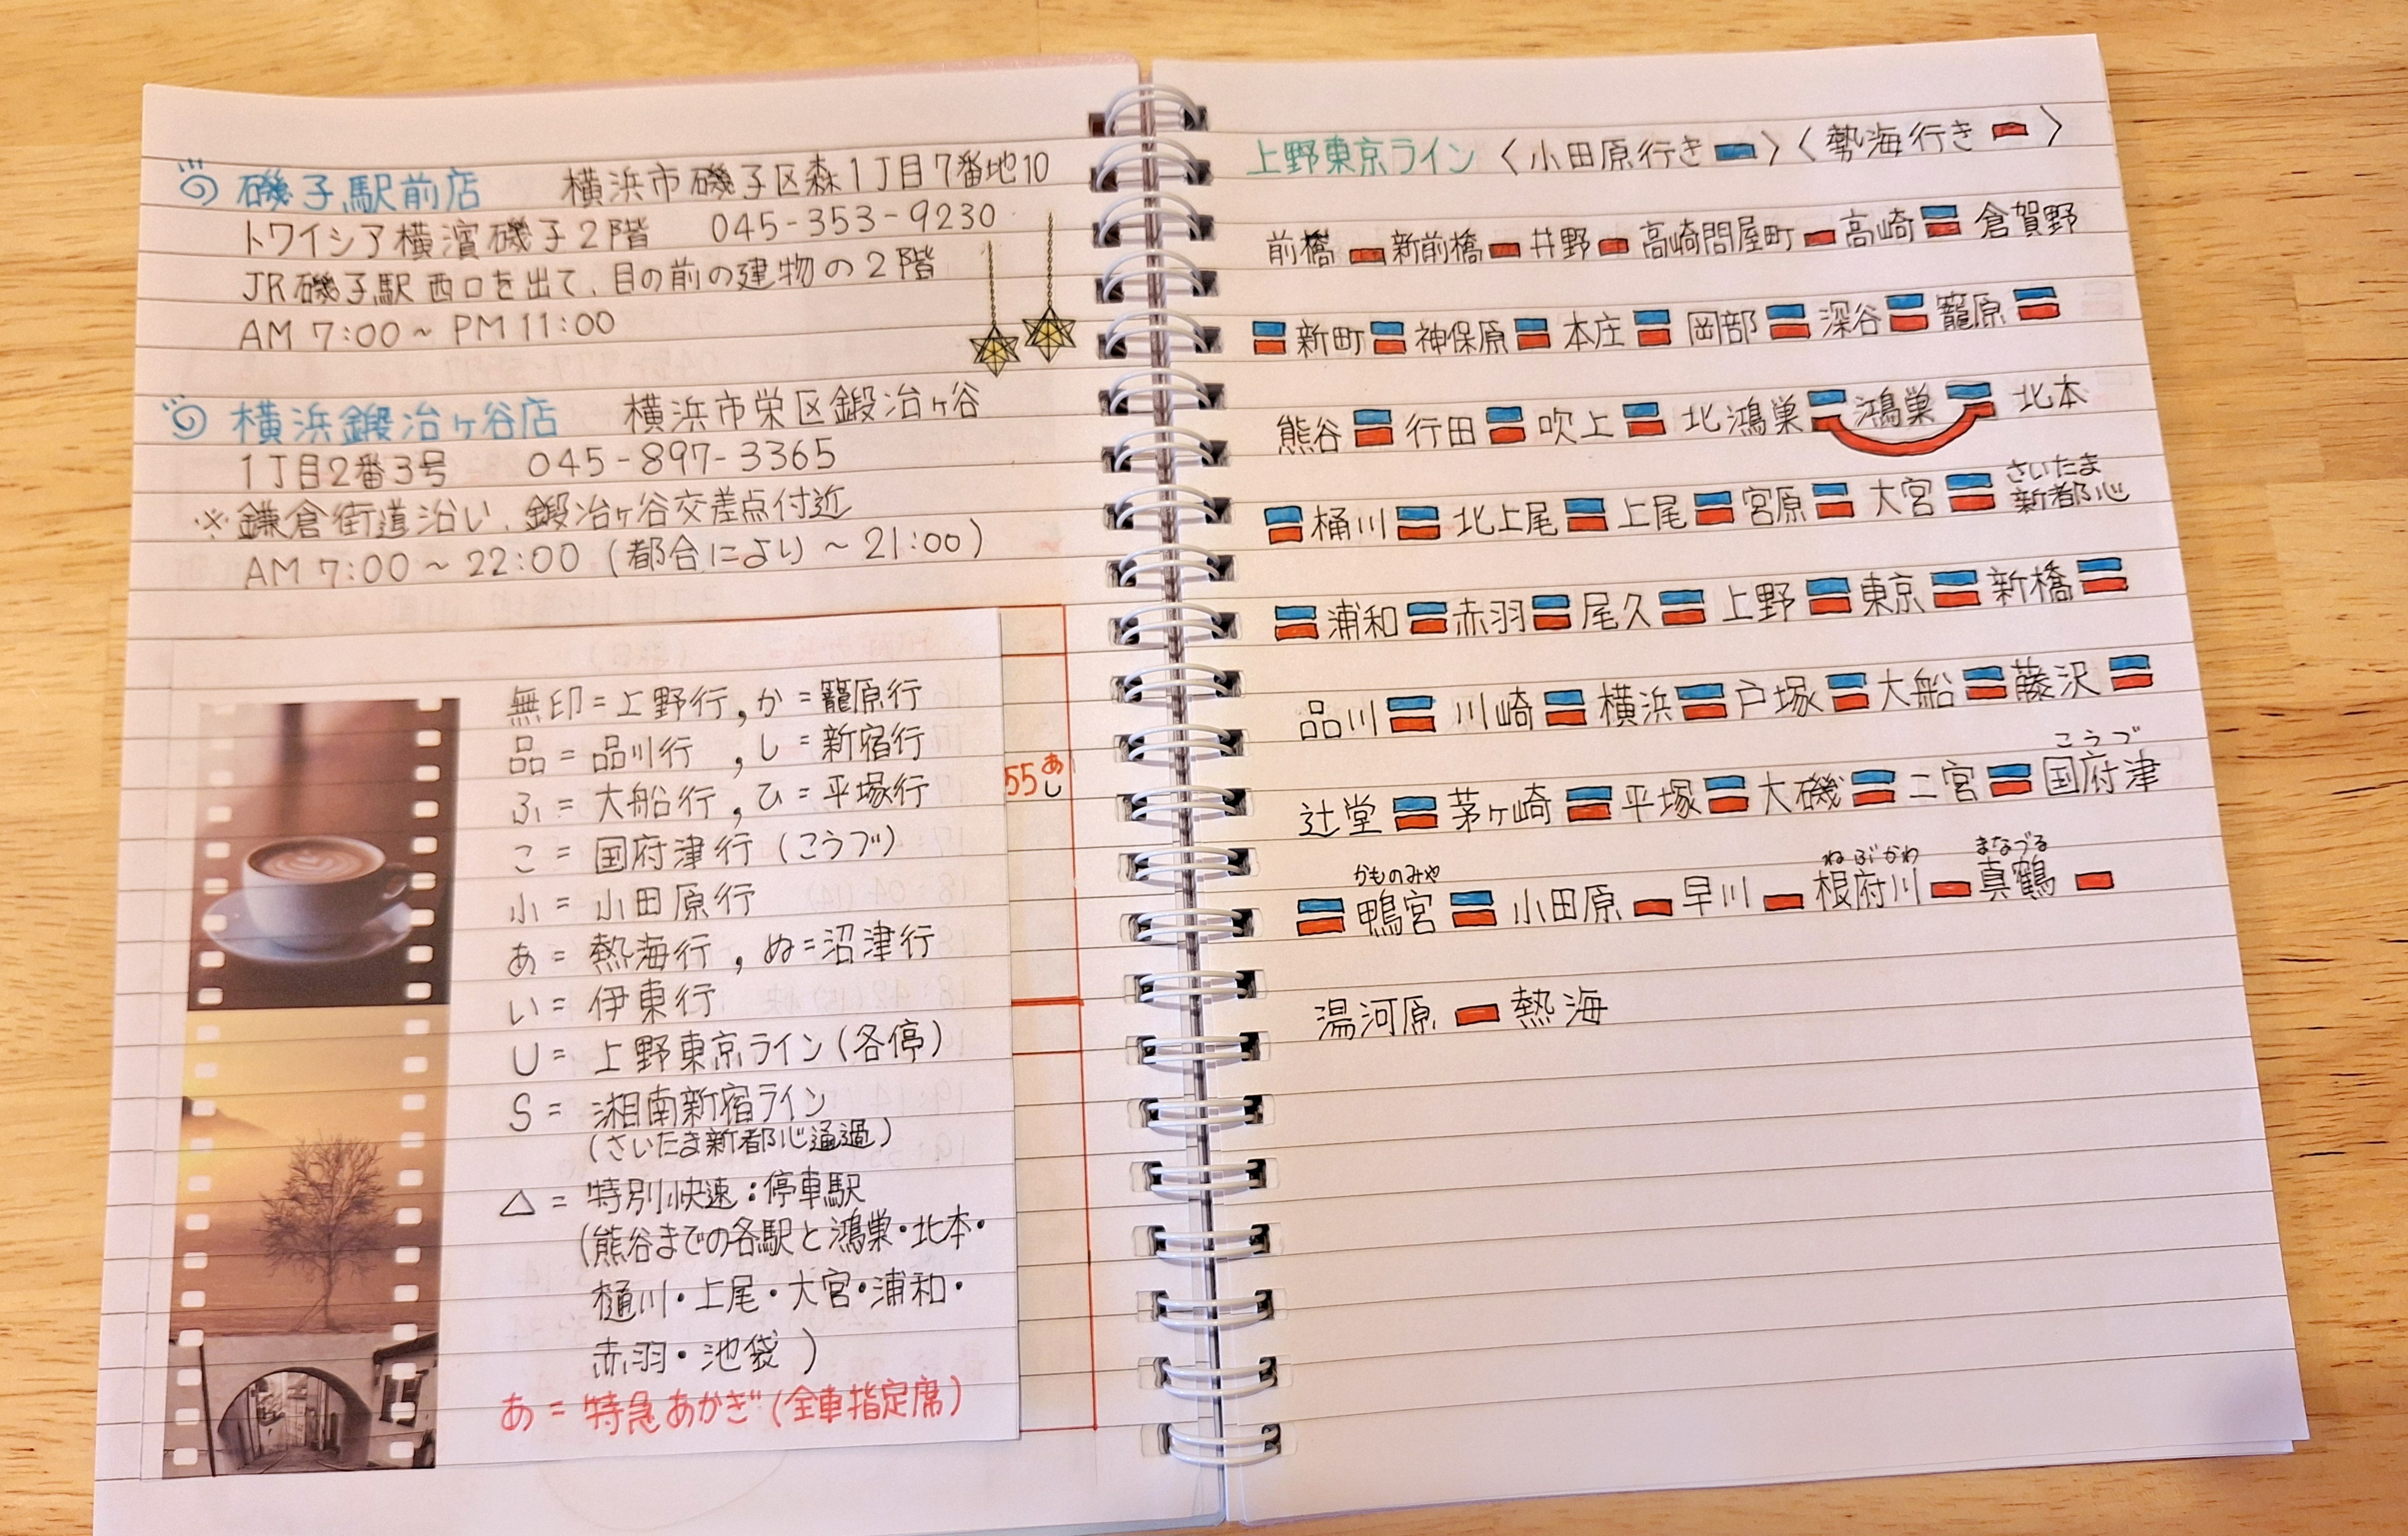 磯子駅前店 横浜市磯子区森1丁目7番地10
トワイシア横濱磯子2階 045-353-9230
JR磯子駅西口を出て、目の前の建物の2階
AM 7:00~PM 11:00
横浜鍛冶ヶ谷店 横浜市栄区鍛冶ヶ谷
1丁目2番3号 045-897-3365
※鎌倉街道沿い、鍛冶ヶ谷交差点付近
AM 7:00~22:00(都合により~21:00)
無印=上野行,か=籠原行
品=品川行,し=新宿行
ふ=大船行,ひ=平塚行
こ=国府津行(こうづ)
小=小田原行
あ=熱海行,ぬ=沼津行
い=伊東行
U=上野東京ライン(各停)
S=湘南新宿ライン
(さいたま新都心通過)
△=特別快速:停車駅
(熊谷までの各駅と鴻巣・北本・
桶川・上尾・大宮・浦和・
赤羽・池袋)
あ=特急あかぎ(全車指定席)
55 あ
し
上野東京ライン〈小田原行き〉〈熱海行き〉
前橋 新前橋 井野 高崎問屋町 高崎 倉賀野
新町 神保原 本庄 岡部 深谷 籠原
熊谷 行田 吹上 北鴻巣 鴻巣 北本
さいたま
桶川 北上尾 上尾 宮原 大宮 新都心
浦和 赤羽 尾久 上野 東京 新橋
品川 川崎 横浜 戸塚 大船 藤沢
こうづ
辻堂 茅ヶ崎 平塚 大磯 二宮 国府津
かものみや ねぶかわ まなづる
鴨宮 小田原 早川 根府川 真鶴
湯河原 熱海